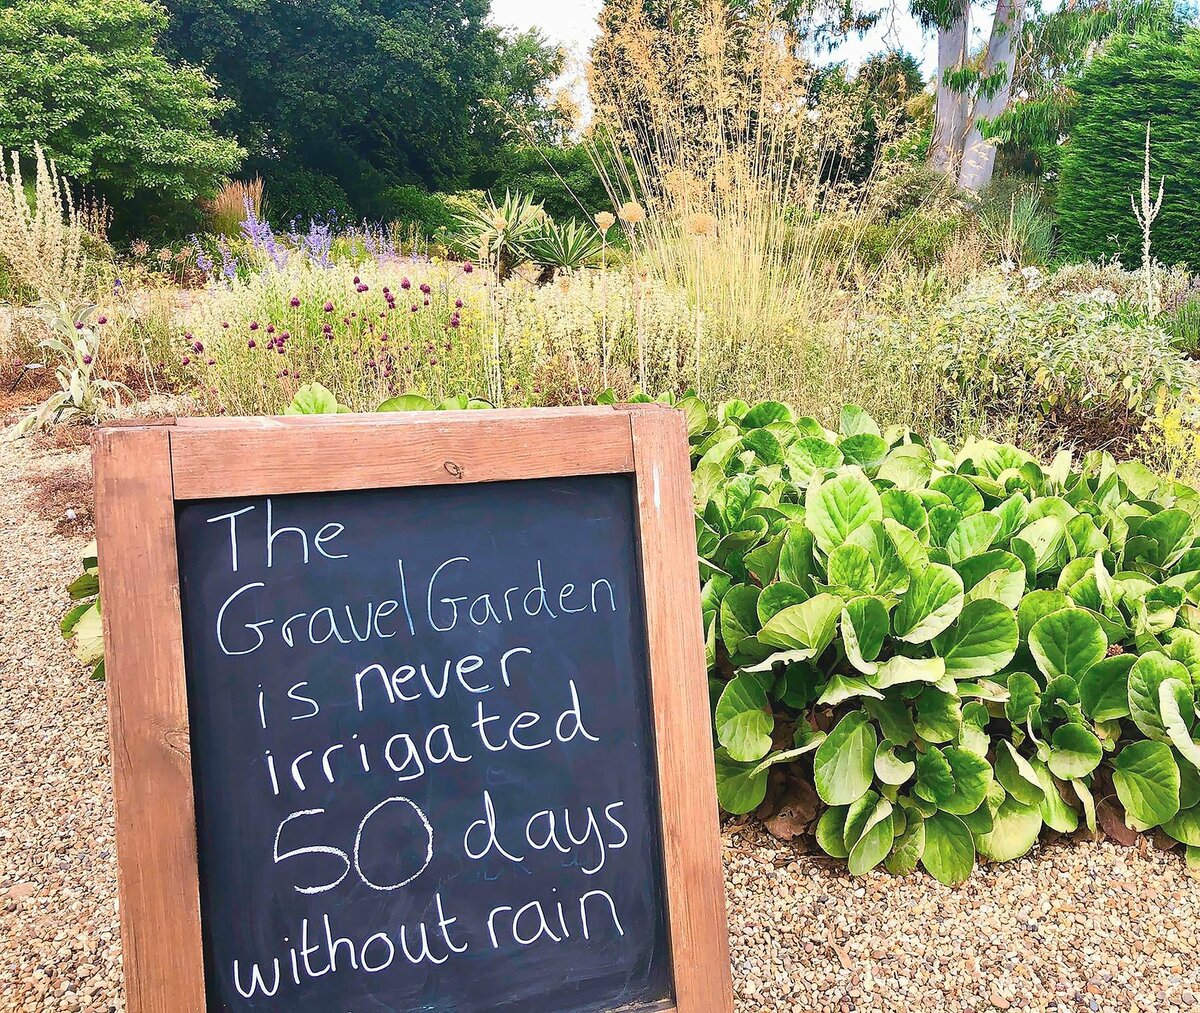 The
Gravel Garden
is never
irrigated
50 days
without rain